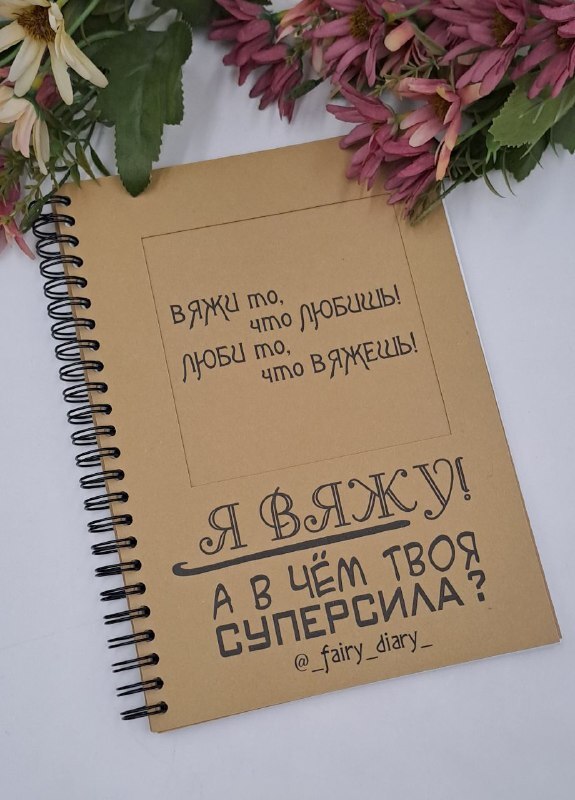 ВЯЖИ то,
что ЛЮБИШЬ!
ЛЮБИ то,
что ВЯЖЕШЬ!
Я ВЯЖУ!
А В ЧЁМ ТВОЯ
СУПЕРСИЛА?
@_fairy_diary_